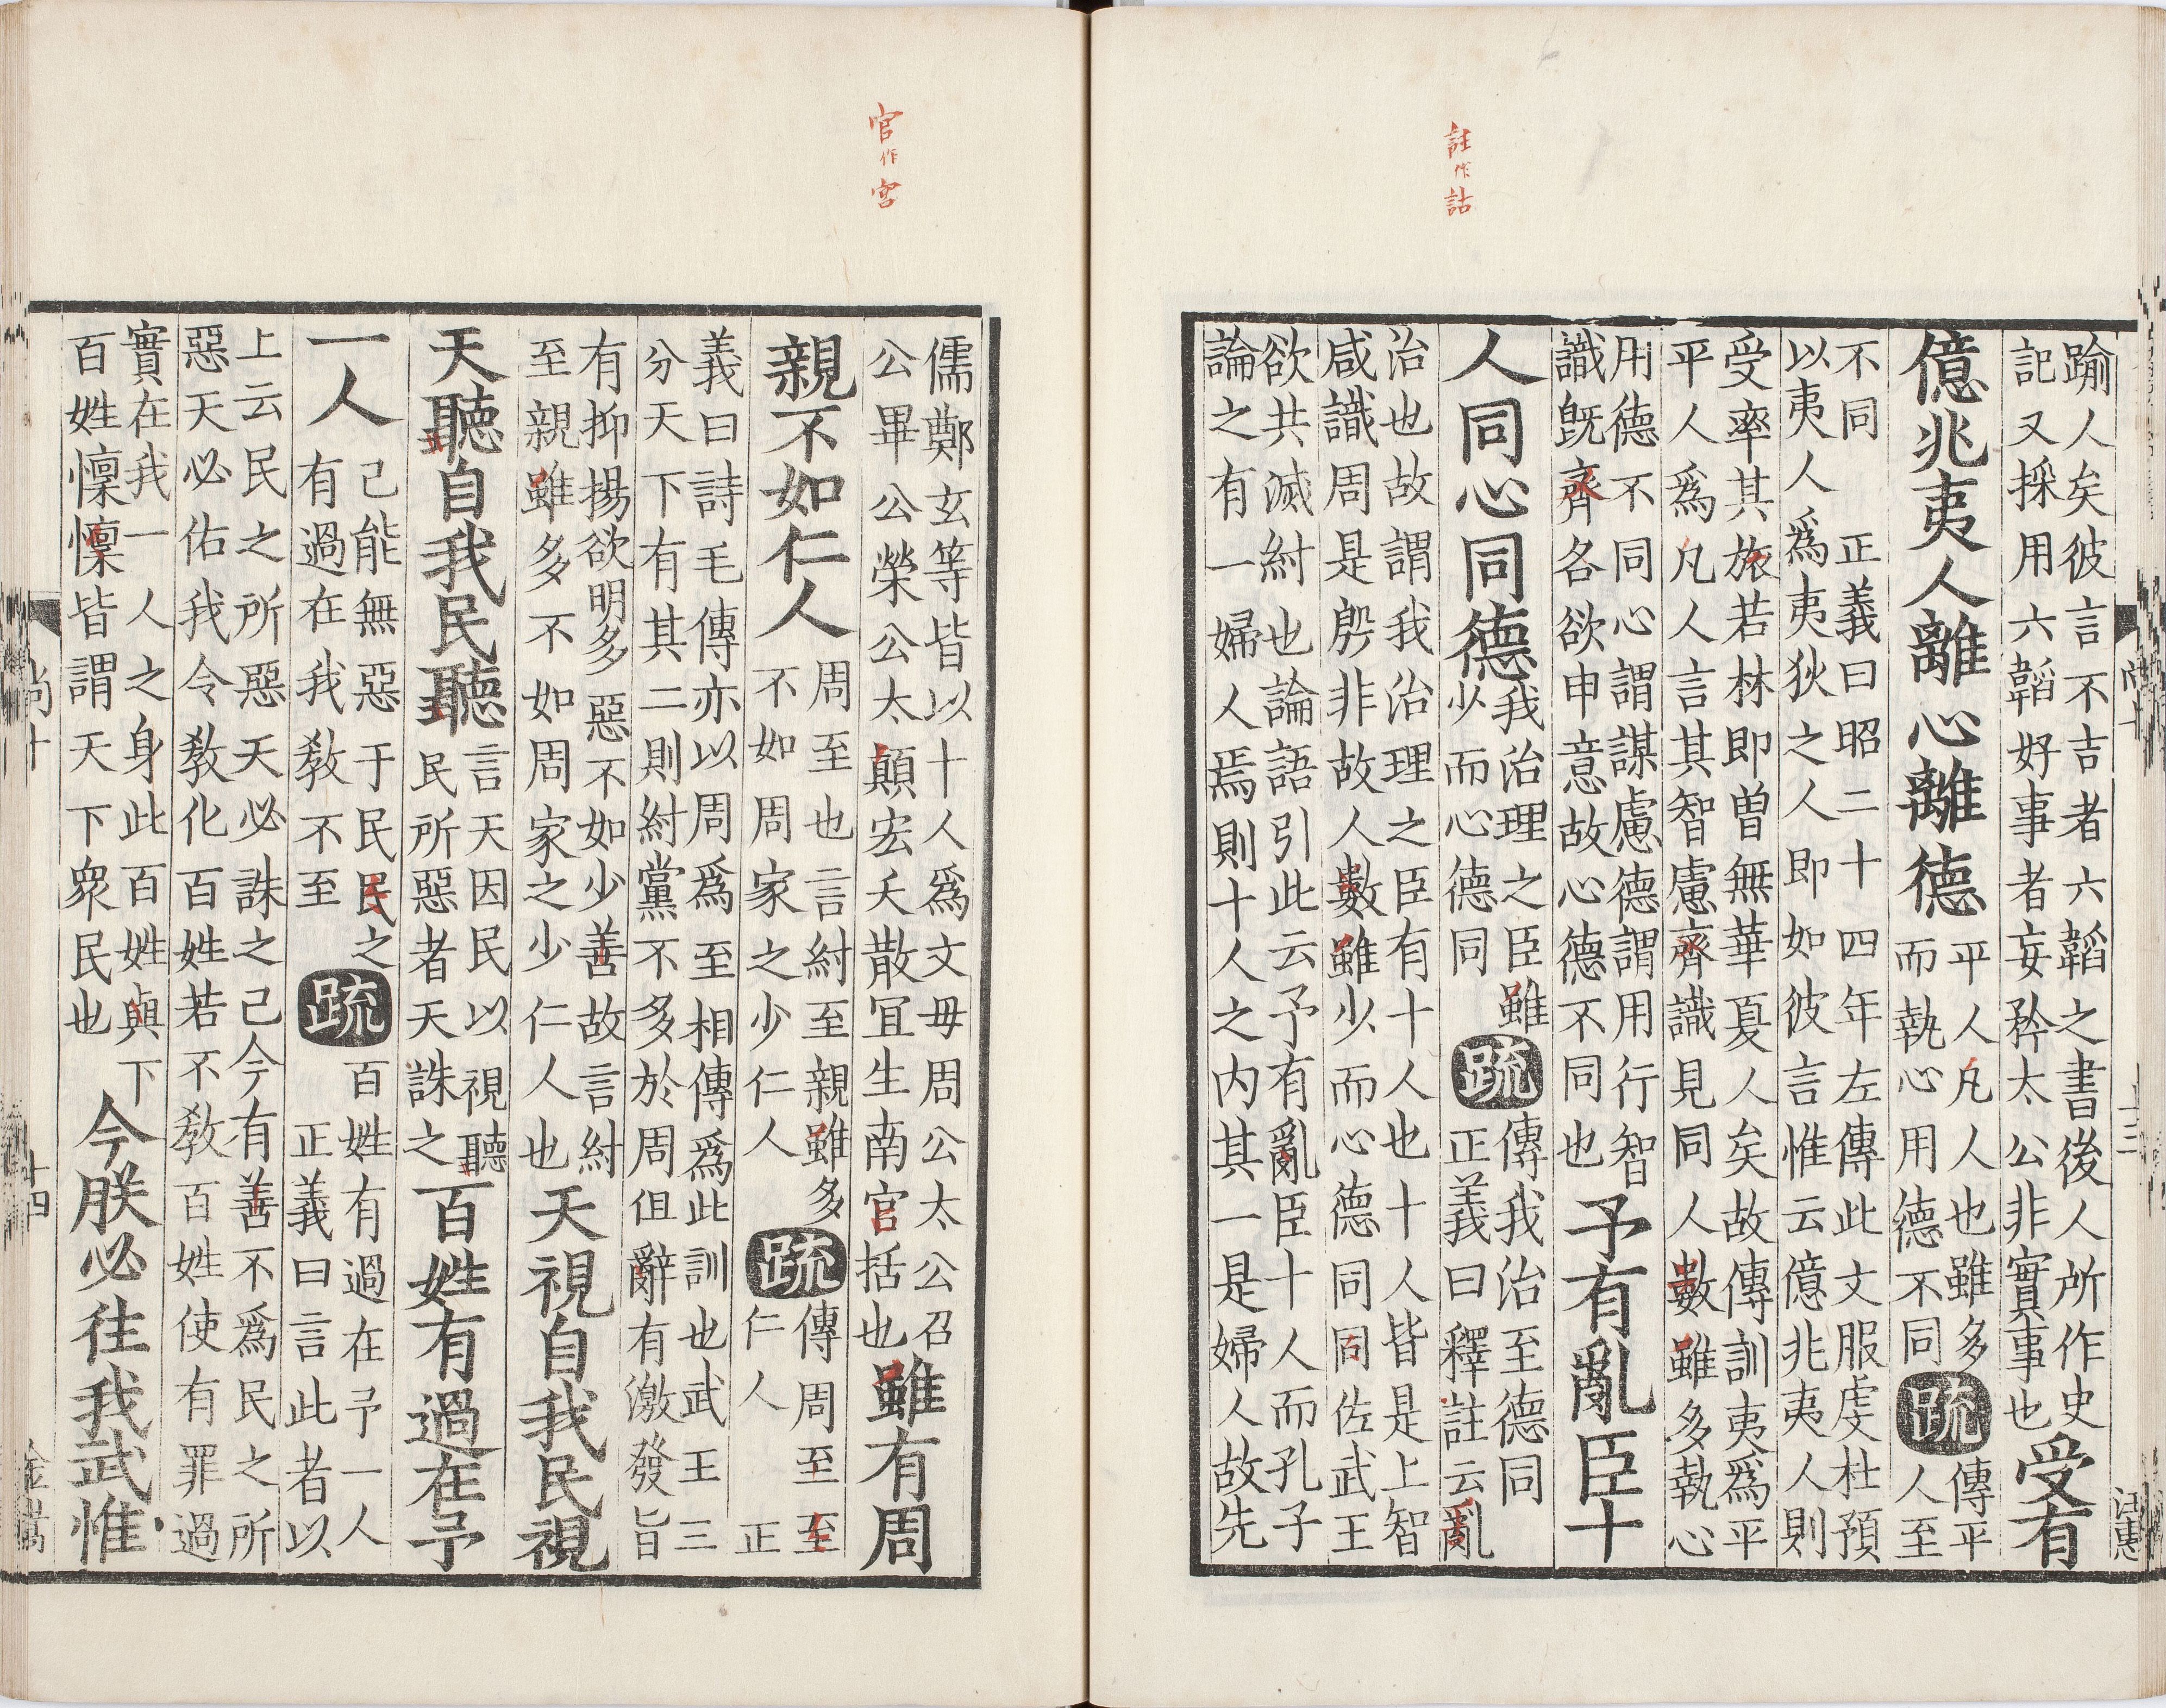 註作詁
踰人矣彼言不吉者六韜之書後人所作史
記又採用六韜好事者妄矜太公非實事也
受有
億兆夷人離心離德
平人凡人也雖多
而執心用德不同
疏
傳平
人至
不同　正義曰昭二十四年左傳此文服虔杜預
以夷人爲夷狄之人即如彼言惟云億兆夷人則
受率其旅若林即曾無華夏人矣故傳訓夷爲平
平人爲凡人言其智慮齊識見同人數雖多執心
用德不同心謂謀慮德謂用行智
識既齊各欲申意故心德不同也
予有亂臣十
人同心同德
我治理之臣雖
少而心德同
疏
傳我治至德同
正義曰釋註云亂
治也故謂我治理之臣有十人也十人皆是上智
咸識周是殷非故人數雖少而心德同同佐武王
欲共滅紂也論語引此云予有亂臣十人而孔子
論之有一婦人焉則十人之內其一是婦人故先
官作宮
儒鄭玄等皆以十人爲文毋周公太公召
公畢公榮公太顛宏夭散冝生南宮括也
雖有周
親不如仁人
周至也言紂至親雖多
不如周家之少仁人
疏
傳周至至
仁人　正
義曰詩毛傳亦以周爲至相傳爲此訓也武王三
分天下有其二則紂黨不多於周伹辭有激發旨
有抑揚欲明多惡不如少善故言紂
至親雖多不如周家之少仁人也
天視自我民視
天聽自我民聽
言天因民以視聽
民所惡者天誅之
百姓有過在予
一人
己能無惡于民民之
有過在我敎不至
疏
百姓有過在予一人
正義曰言此者以
上云民之所惡天必誅之己今有善不爲民之所
惡天必佑我令敎化百姓若不敎百姓使有罪過
實在我一人之身此百姓與下
百姓懍懍皆謂天下衆民也
今朕必往我武惟
尚十
十四